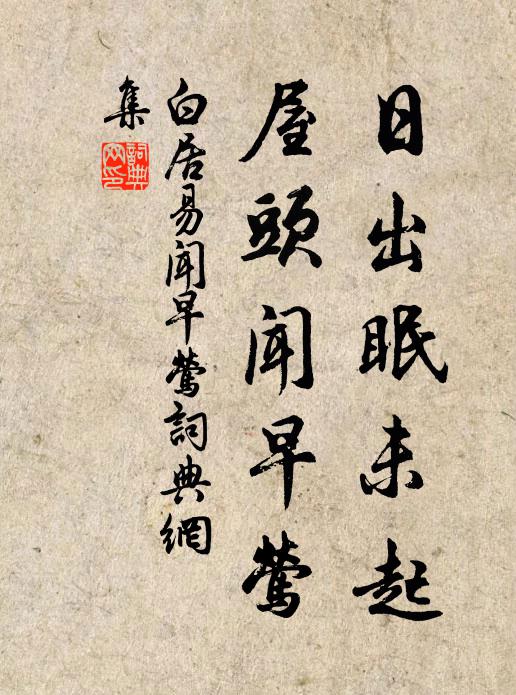 日出眠未起
屋頭聞早鶯
白居易聞早鶯詞典網
集
詞典
網印